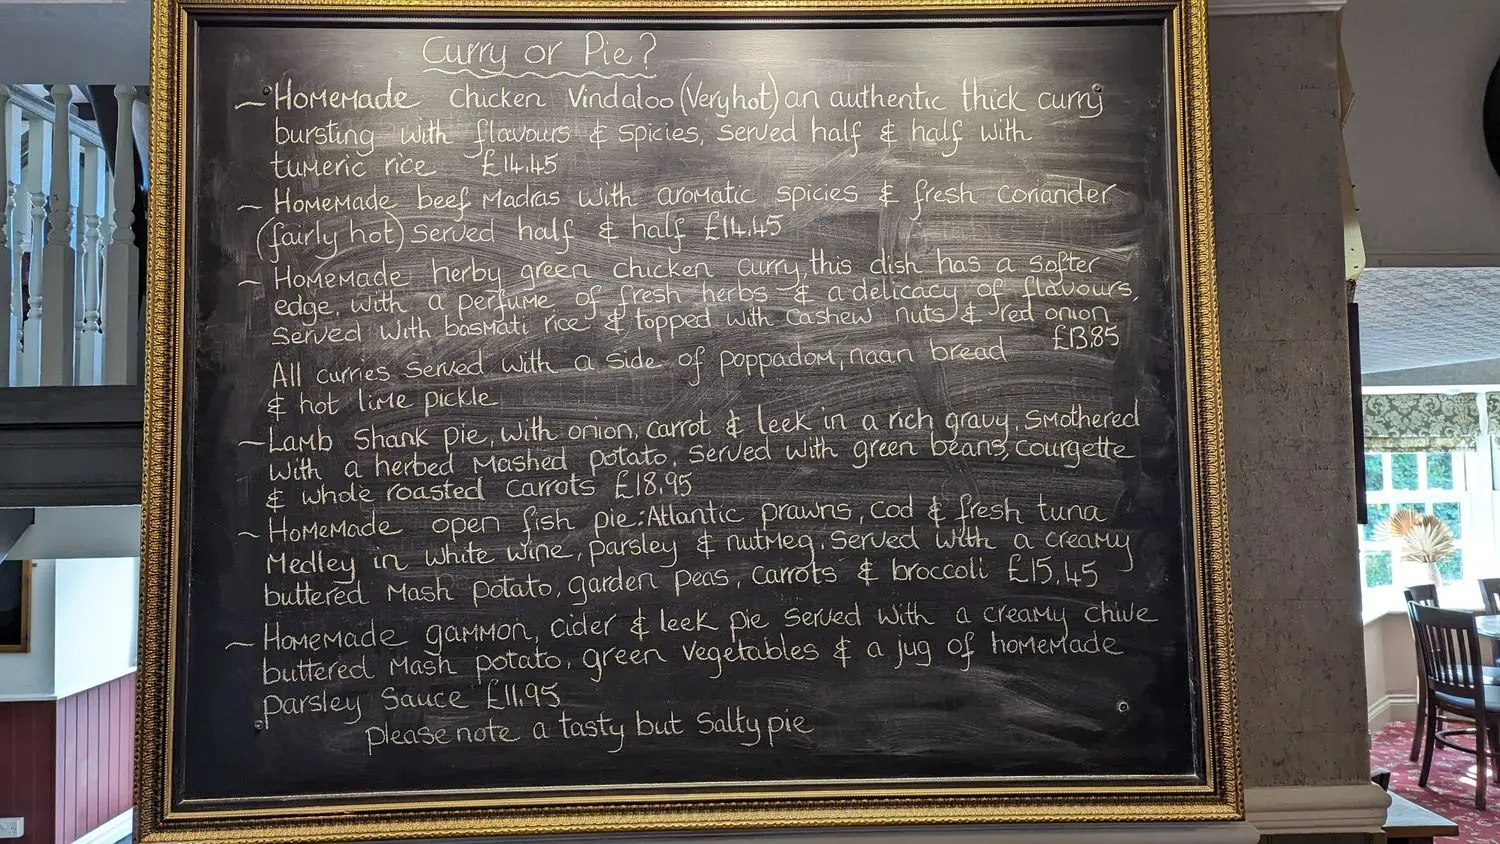 Curry or Pie?
~ Homemade chicken Vindaloo (Very hot) an authentic thick curry
bursting with flavours & spicies, served half & half with
tumeric rice £14.45
~ Homemade beef Madras with aromatic spicies & fresh coriander
(fairly hot) served half & half £14.45
~ Homemade herby green chicken curry, this dish has a softer
edge, with a perfume of fresh herbs & a delicacy of flavours,
served with basmati rice & topped with cashew nuts & red onion
£13.85
All curries served with a side of poppadom, naan bread
& hot lime pickle
~ Lamb shank pie, with onion, carrot & leek in a rich gravy, smothered
with a herbed mashed potato. Served with green beans, courgette
& whole roasted carrots £18.95
~ Homemade open fish pie: Atlantic prawns, cod & fresh tuna
Medley in white wine, parsley & nutmeg. Served with a creamy
buttered mash potato, garden peas, carrots & broccoli £15.45
~ Homemade gammon, cider & leek pie served with a creamy chive
buttered mash potato, green vegetables & a jug of homemade
parsley sauce £11.95
please note a tasty but salty pie